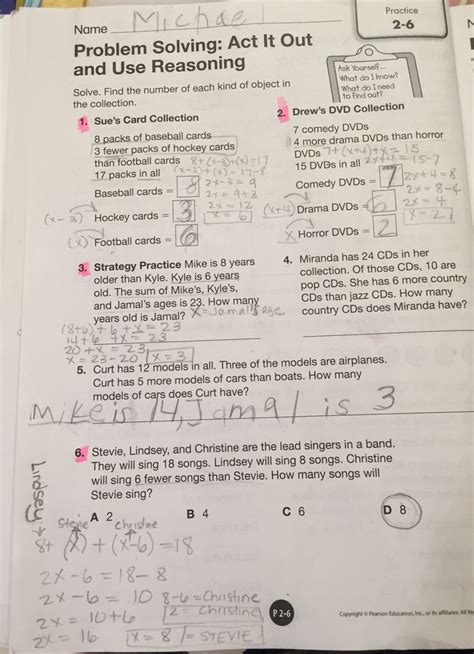 Name Michael
Practice
2-6
Problem Solving: Act It Out
and Use Reasoning
Ask Yourself...
What do I know?
What do I need
to find out?
Solve. Find the number of each kind of object in
the collection.
1. Sue's Card Collection
8 packs of baseball cards
3 fewer packs of hockey cards
than football cards 8+(x-3)+(x)=17
17 packs in all (x-3)+(x)=17-8
2x-3=9
Baseball cards = 8 2x=9+3
2x=12
(x-3) Hockey cards = 3 x=6
(x) Football cards = 6
2. Drew's DVD Collection
7 comedy DVDs
4 more drama DVDs than horror
DVDs 7+(x+4)+x=15
15 DVDs in all 2x+4=15-7
Comedy DVDs = 7 2x+4=8
2x=8-4
(x+4) Drama DVDs = 6 2x=4
x=2
x Horror DVDs = 2
3. Strategy Practice Mike is 8 years
older than Kyle. Kyle is 6 years
old. The sum of Mike's, Kyle's,
and Jamal's ages is 23. How many
years old is Jamal? X=Jamal's age
(8+6)+6+x=23
14+6+x=23
20+x=23
x=23-20 x=3
4. Miranda has 24 CDs in her
collection. Of those CDs, 10 are
pop CDs. She has 6 more country
CDs than jazz CDs. How many
country CDs does Miranda have?
5. Curt has 12 models in all. Three of the models are airplanes.
Curt has 5 more models of cars than boats. How many
models of cars does Curt have?
Mike is 14, Jamal is 3
6. Stevie, Lindsey, and Christine are the lead singers in a band.
They will sing 18 songs. Lindsey will sing 8 songs. Christine
will sing 6 fewer songs than Stevie. How many songs will
Stevie sing?
A 2 B 4 C 6 D 8
Lindsey
Stevie christine
8+ (x) + (x-6) =18
2x-6=18-8
2x-6=10 8-6=Christine
2x=10+6 2=Christine
2x=16 x=8 = STEVIE
P 2-6
Copyright © Pearson Education, Inc., or its affiliates. All